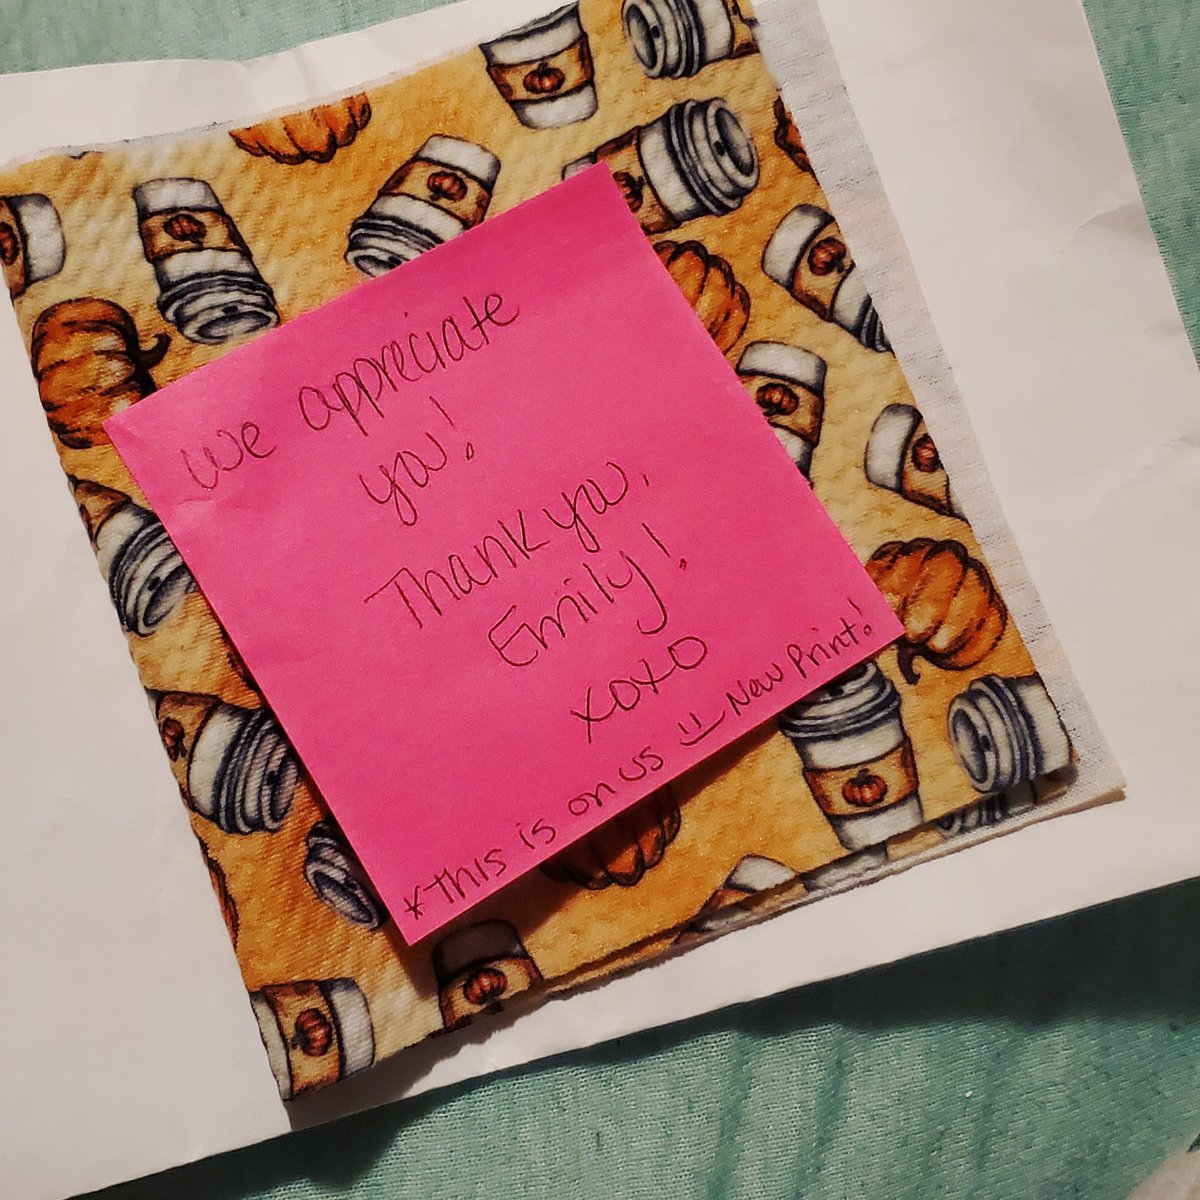 we appreciate
you!
Thank you,
Emily!
xoxo
*This is on us :) New Print!